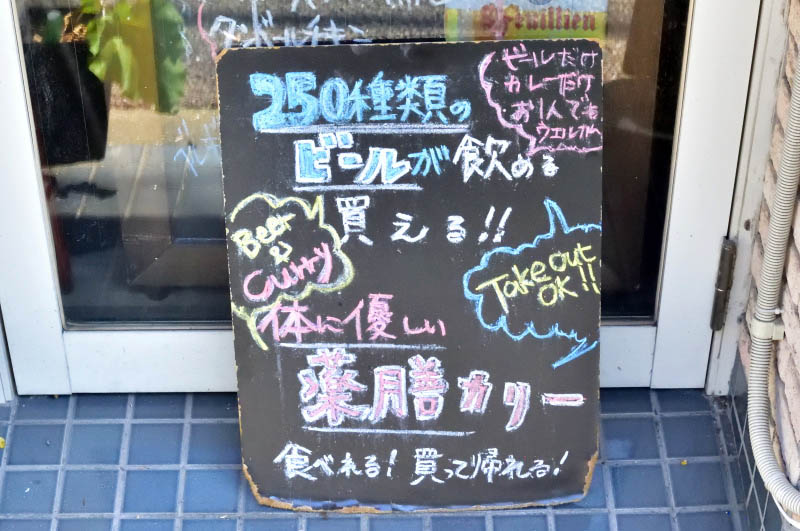 Feuillien
ダンボールチキン
ビールだけ
カレーだけ
お1人でも
ウエルカム
250種類の
ビールが飲める
買える!!
Beer
&
Curry
Take out
OK!!
体に優しい
薬膳カリー
食べれる! 買って帰れる!